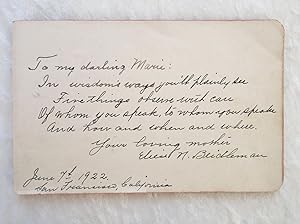 To my darling Marie:
In wisdom's ways you'll plainly see
Five things observe with care
Of whom you speak, to whom you speak
And how and when and where.
Your loving mother
N. Beideman
June 7th, 1922.
San Francisco, California